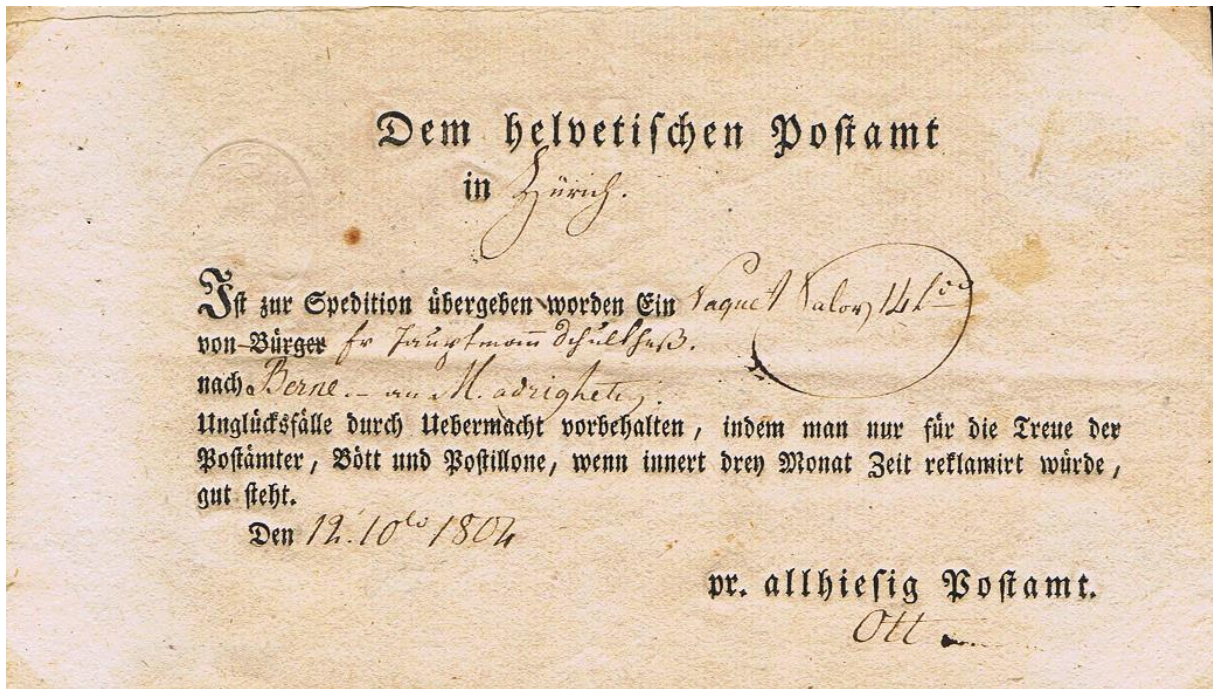 Dem helvetischen Postamt
in Zürich.
Ist zur Spedition übergeben worden Ein Paquet Valor 14
von Bürger Hr Hauptmann Schultheß.
nach Berne. – an M.
Unglücksfälle durch Uebermacht vorbehalten, indem man nur für die Treue der
Postämter, Bött und Postillone, wenn innert drey Monat Zeit reklamirt würde,
gut steht.
Den 12. 10bo 1804
pr. allhiesig Postamt.
Ott